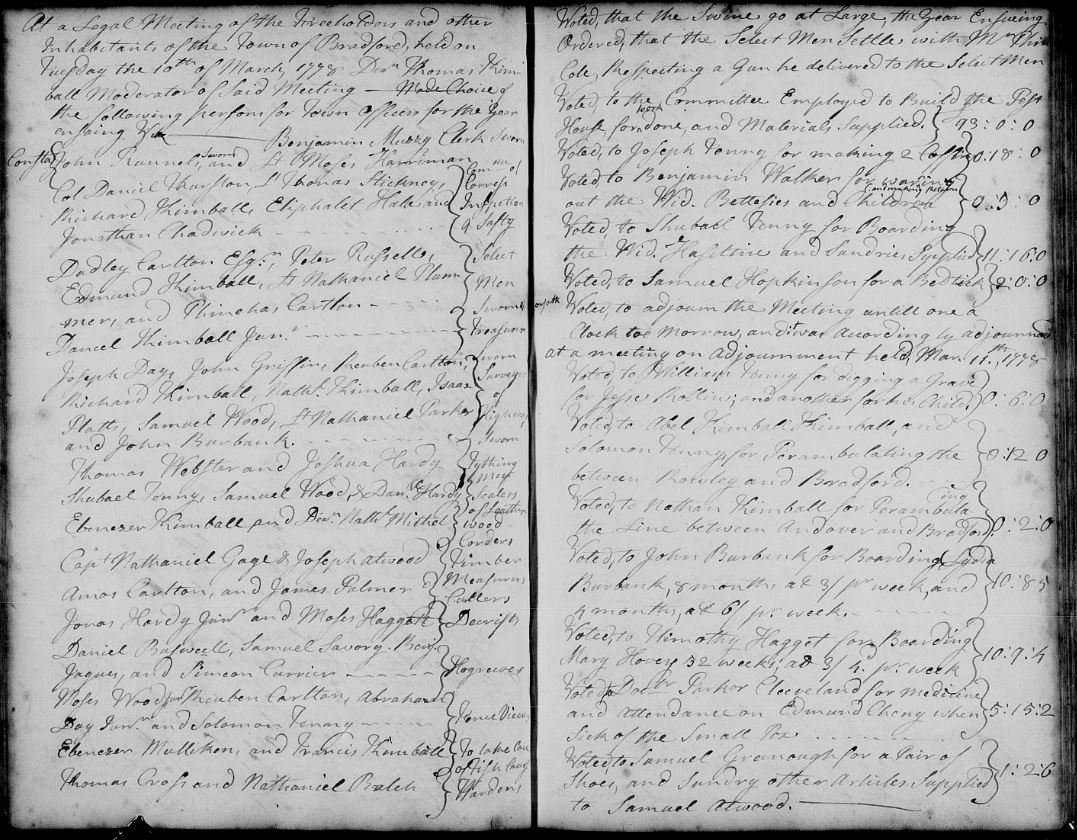 At a Legal Meeting of the Freeholders and other
Inhabitants of the Town of Bradford, held on
Tuesday the 10th of March, 1778 Dean Thomas Kim
ball Moderator of Said Meeting — Made Choice of
the following persons for Town Officers for the Year
ensuing Viz Benjamin Muzzy Clerk Sworn
Constab John Runnels, Sworn and Lt Moses Harriman
Col Daniel Thurston, Lt Thomas Stickney,
Richard Kimball, Eliphalet Hale and
Jonathan Chadwick
Com of
Corres
Inspection
& Safty
Dudley Carlton Esqr, Peter Russells,
Edmund Kimball, Lt Nathaniel Plum
mer, and Phinehas Carlton
Select
Men
Sworn
Daniel Kimball Junr
Treasurer
Sworn
Joseph Day, John Griffin, Reuben Carlton,
Richard Kimball, Nathl Kimball, Isaac
Platts, Samuel Wood, Lt Nathaniel Parker
and John Burbank.
Surveyor
of
Highways
Sworn
Thomas Webster and Joshua Hardy
Tything
Men
Shubael Tenny, Samuel Wood, & Danl Hardy
Sealers
of Leather
Ebenezer Kimball and Dean Nathl Michel
wood
Corders
Capt Nathaniel Gage & Joseph Atwood
Timber
Measurers
Amos Carlton, and James Palmer
Cullers
Jonas Hardy Junr and Moses Haggett
Deerifts
Daniel Buswell, Samuel Savory. Benj
Jaques, and Simeon Currier
Hogreeves
Moses Wood Junr Reuben Carlton, Abraham
Day Junr and Solomon Tenny
Fence View
Ebenezer Mulliken, and Francis Kimball
To take Care
of Fish
Thomas Cross and Nathaniel Balch
Wardens
Voted, that the Swine go at Large, the Year Ensueing
Ordered, that the Select Men Settle with Mr
Cole, Respecting a Gun he delivered to the Select Men
Voted to the Committee Employed to Build the Pest
House for work done, and Materials Supplied. 93:0:0
Voted, to Joseph Tenny for making 2 Coffins 0:18:0
Voted to Benjamin Walker for warning
out the Wid. Bettesies and Children and making Return 0:9:0
Voted to Shuball Tenny for Boarding
the Wid. Haseltine and Sundries Supplied 11:16:0
Voted, to Samuel Hopkinson for a Bedtick 2:0:0
Voted to adjourn the Meeting untill one a
Clock too Morrow, and it was Accordingly adjourned
at a meeting on Adjournment held, Mar. 11th, 1778
Voted, to William Tenny for digging a Grave
for Jesse Rollins; and another for his Child 0:6:0
Voted, to Abel Kimball Kimball, and
Solomon Tenny, for Perambulating the
between Rowley and Bradford. 0:12:0
Voted, to Nathan Kimball for Perambulating
the Line between Andover and Bradford. 0:2:0
Voted, to John Burbank for Boarding Lydia
Burbank, 8 months at 3/ pr week, and
4 months, at 6/ pr week. 10:8:5
Voted, to Timothy Hagget for Boarding
Mary Hovey 52 weeks, at 3/ 4. pr week 10:9:4
Voted to Doctr Parker Cleeveland for Medicine
and Attendance on Edmund Cheny when
Sick of the Small Pox 5:15:2
Voted to Samuel Greenough for a Pair of
Shoes, and Sundry other Articles Supplied
to Samuel Atwood. 1:2:6